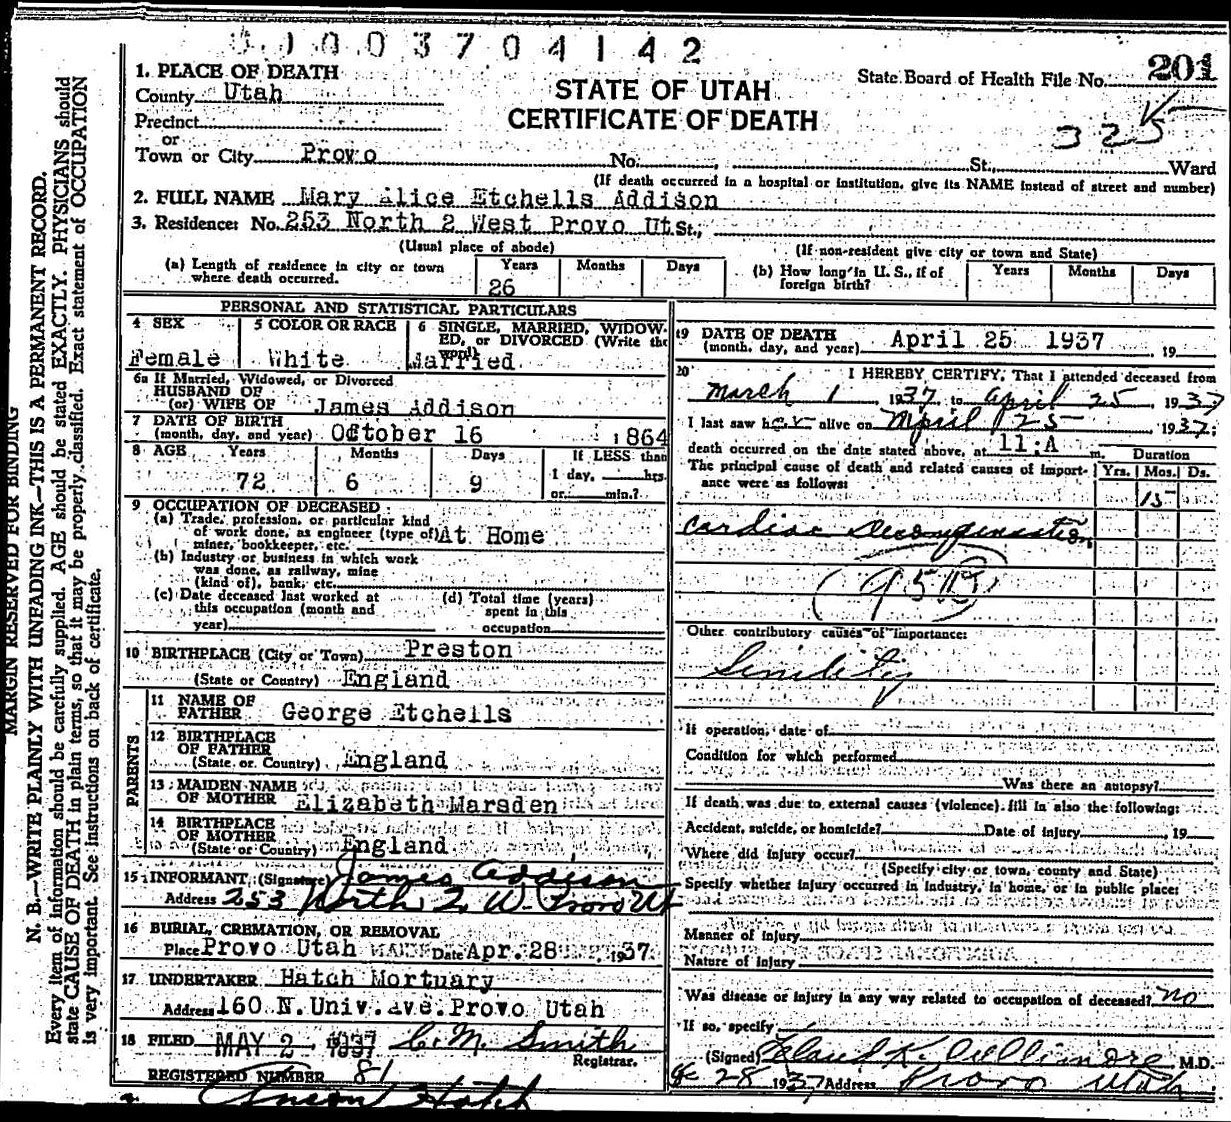 0 1 0 0 3 7 0 4 1 4 2
State Board of Health File No. 201
325
STATE OF UTAH
CERTIFICATE OF DEATH
1. PLACE OF DEATH
County Utah
Precinct
or
Town or City Provo No. St., Ward
(If death occurred in a hospital or institution, give its NAME instead of street and number)
2. FULL NAME Mary Alice Etchells Addison
3. Residence: No. 253 North 2 West Provo Ut St.,
(Usual place of abode) (If non-resident give city or town and State)
(a) Length of residence in city or town where death occurred. Years 26 Months Days
(b) How long in U. S., if of foreign birth? Years Months Days
PERSONAL AND STATISTICAL PARTICULARS
4 SEX Female
5 COLOR OR RACE White
6 SINGLE, MARRIED, WIDOWED, or DIVORCED (Write the word) Married
6a If Married, Widowed, or Divorced
HUSBAND OF
(or) WIFE OF James Addison
7 DATE OF BIRTH
(month, day, and year) October 16 1864
8 AGE Years 72 Months 6 Days 9 If LESS than
1 day, hrs.
or min.?
9 OCCUPATION OF DECEASED
(a) Trade, profession, or particular kind
of work done, as engineer (type of) At Home
miner, bookkeeper, etc.
(b) Industry or business in which work
was done, as railway, mine
(kind of), bank, etc.
(c) Date deceased last worked at
this occupation (month and
year)
(d) Total time (years)
spent in this
occupation
10 BIRTHPLACE (City or Town) Preston
(State or Country) England
PARENTS
11 NAME OF
FATHER George Etchells
12 BIRTHPLACE
OF FATHER
(State or Country) England
13 MAIDEN NAME
OF MOTHER Elizabeth Marsden
14 BIRTHPLACE
OF MOTHER
(State or Country) England
15 INFORMANT (Signature) James Addison
Address 253 North 2 W. Provo Ut
16 BURIAL, CREMATION, OR REMOVAL
Place Provo Utah Date Apr. 28 1937
17 UNDERTAKER Hatch Mortuary
Address 160 N. Univ. Ave. Provo Utah
18 FILED MAY 2 1937 C. M. Smith
Registrar.
REGISTERED NUMBER 81
Hatch
19 DATE OF DEATH
(month, day, and year) April 25 1937 , 19
20 I HEREBY CERTIFY, That I attended deceased from
March 1, 1937, to April 25, 1937
I last saw her alive on April 25 1937;
death occurred on the date stated above, at 11:A m.
Duration
The principal cause of death and related causes of importance were as follows:
Yrs. Mos. Ds.
15
Cardiac Decompensation
(95B)
Other contributory causes of importance:
Senility
If operation, date of
Condition for which performed
Was there an autopsy?
If death was due to external causes (violence) fill in also the following:
Accident, suicide, or homicide? Date of injury , 19
Where did injury occur?
(Specify city or town, county and State)
Specify whether injury occurred in industry, in home, or in public place:
Manner of injury
Nature of injury
Was disease or injury in any way related to occupation of deceased? no
If so, specify
(Signed) K. Cullimore M.D.
28 1937 Address Provo Utah
MARGIN RESERVED FOR BINDING
N. B.—WRITE PLAINLY WITH UNFADING INK—THIS IS A PERMANENT RECORD.
Every item of information should be carefully supplied. AGE should be stated EXACTLY. PHYSICIANS should
state CAUSE OF DEATH in plain terms, so that it may be properly classified. Exact statement of OCCUPATION
is very important. See instructions on back of certificate.